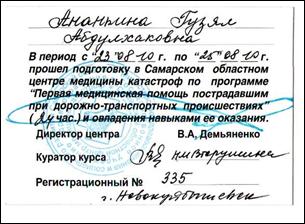 Ананьина Гузял
Абдулхаковна
В период с "23" 08 10 г. по "25" 08 10 г.
прошел подготовку в Самарском областном
центре медицины катастроф по программе
"Первая медицинская помощь пострадавшим
при дорожно-транспортных происшествиях"
(24 час.) и овладения навыками ее оказания.
Директор центра В.А. Демьяненко
Куратор курса
Регистрационный № 335
г. Новокуйбышевск